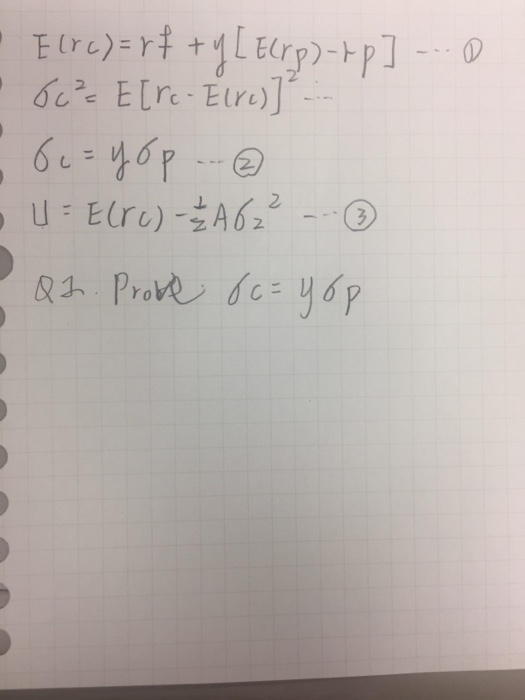 E(rc) = rf + y[E(rp) - rp] --- ①
σc² = E[rc - E(rc)]² ---
σc = yσp --- ②
U = E(rc) - ½Aσ₂² --- ③
Q1. Prove: σc = yσp